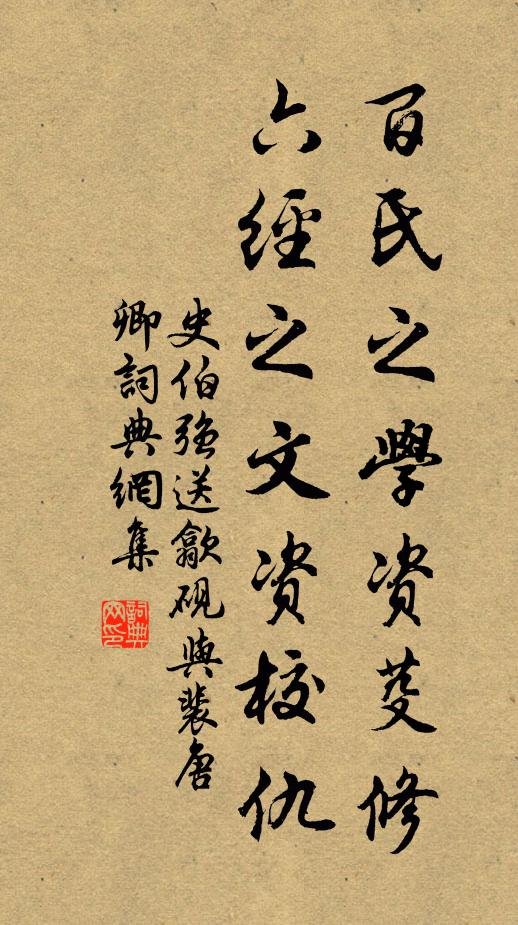 百氏之學資芟修
六經之文資校仇
史伯强送歙硯與裴唐
卿詞典網集
詞典
网印